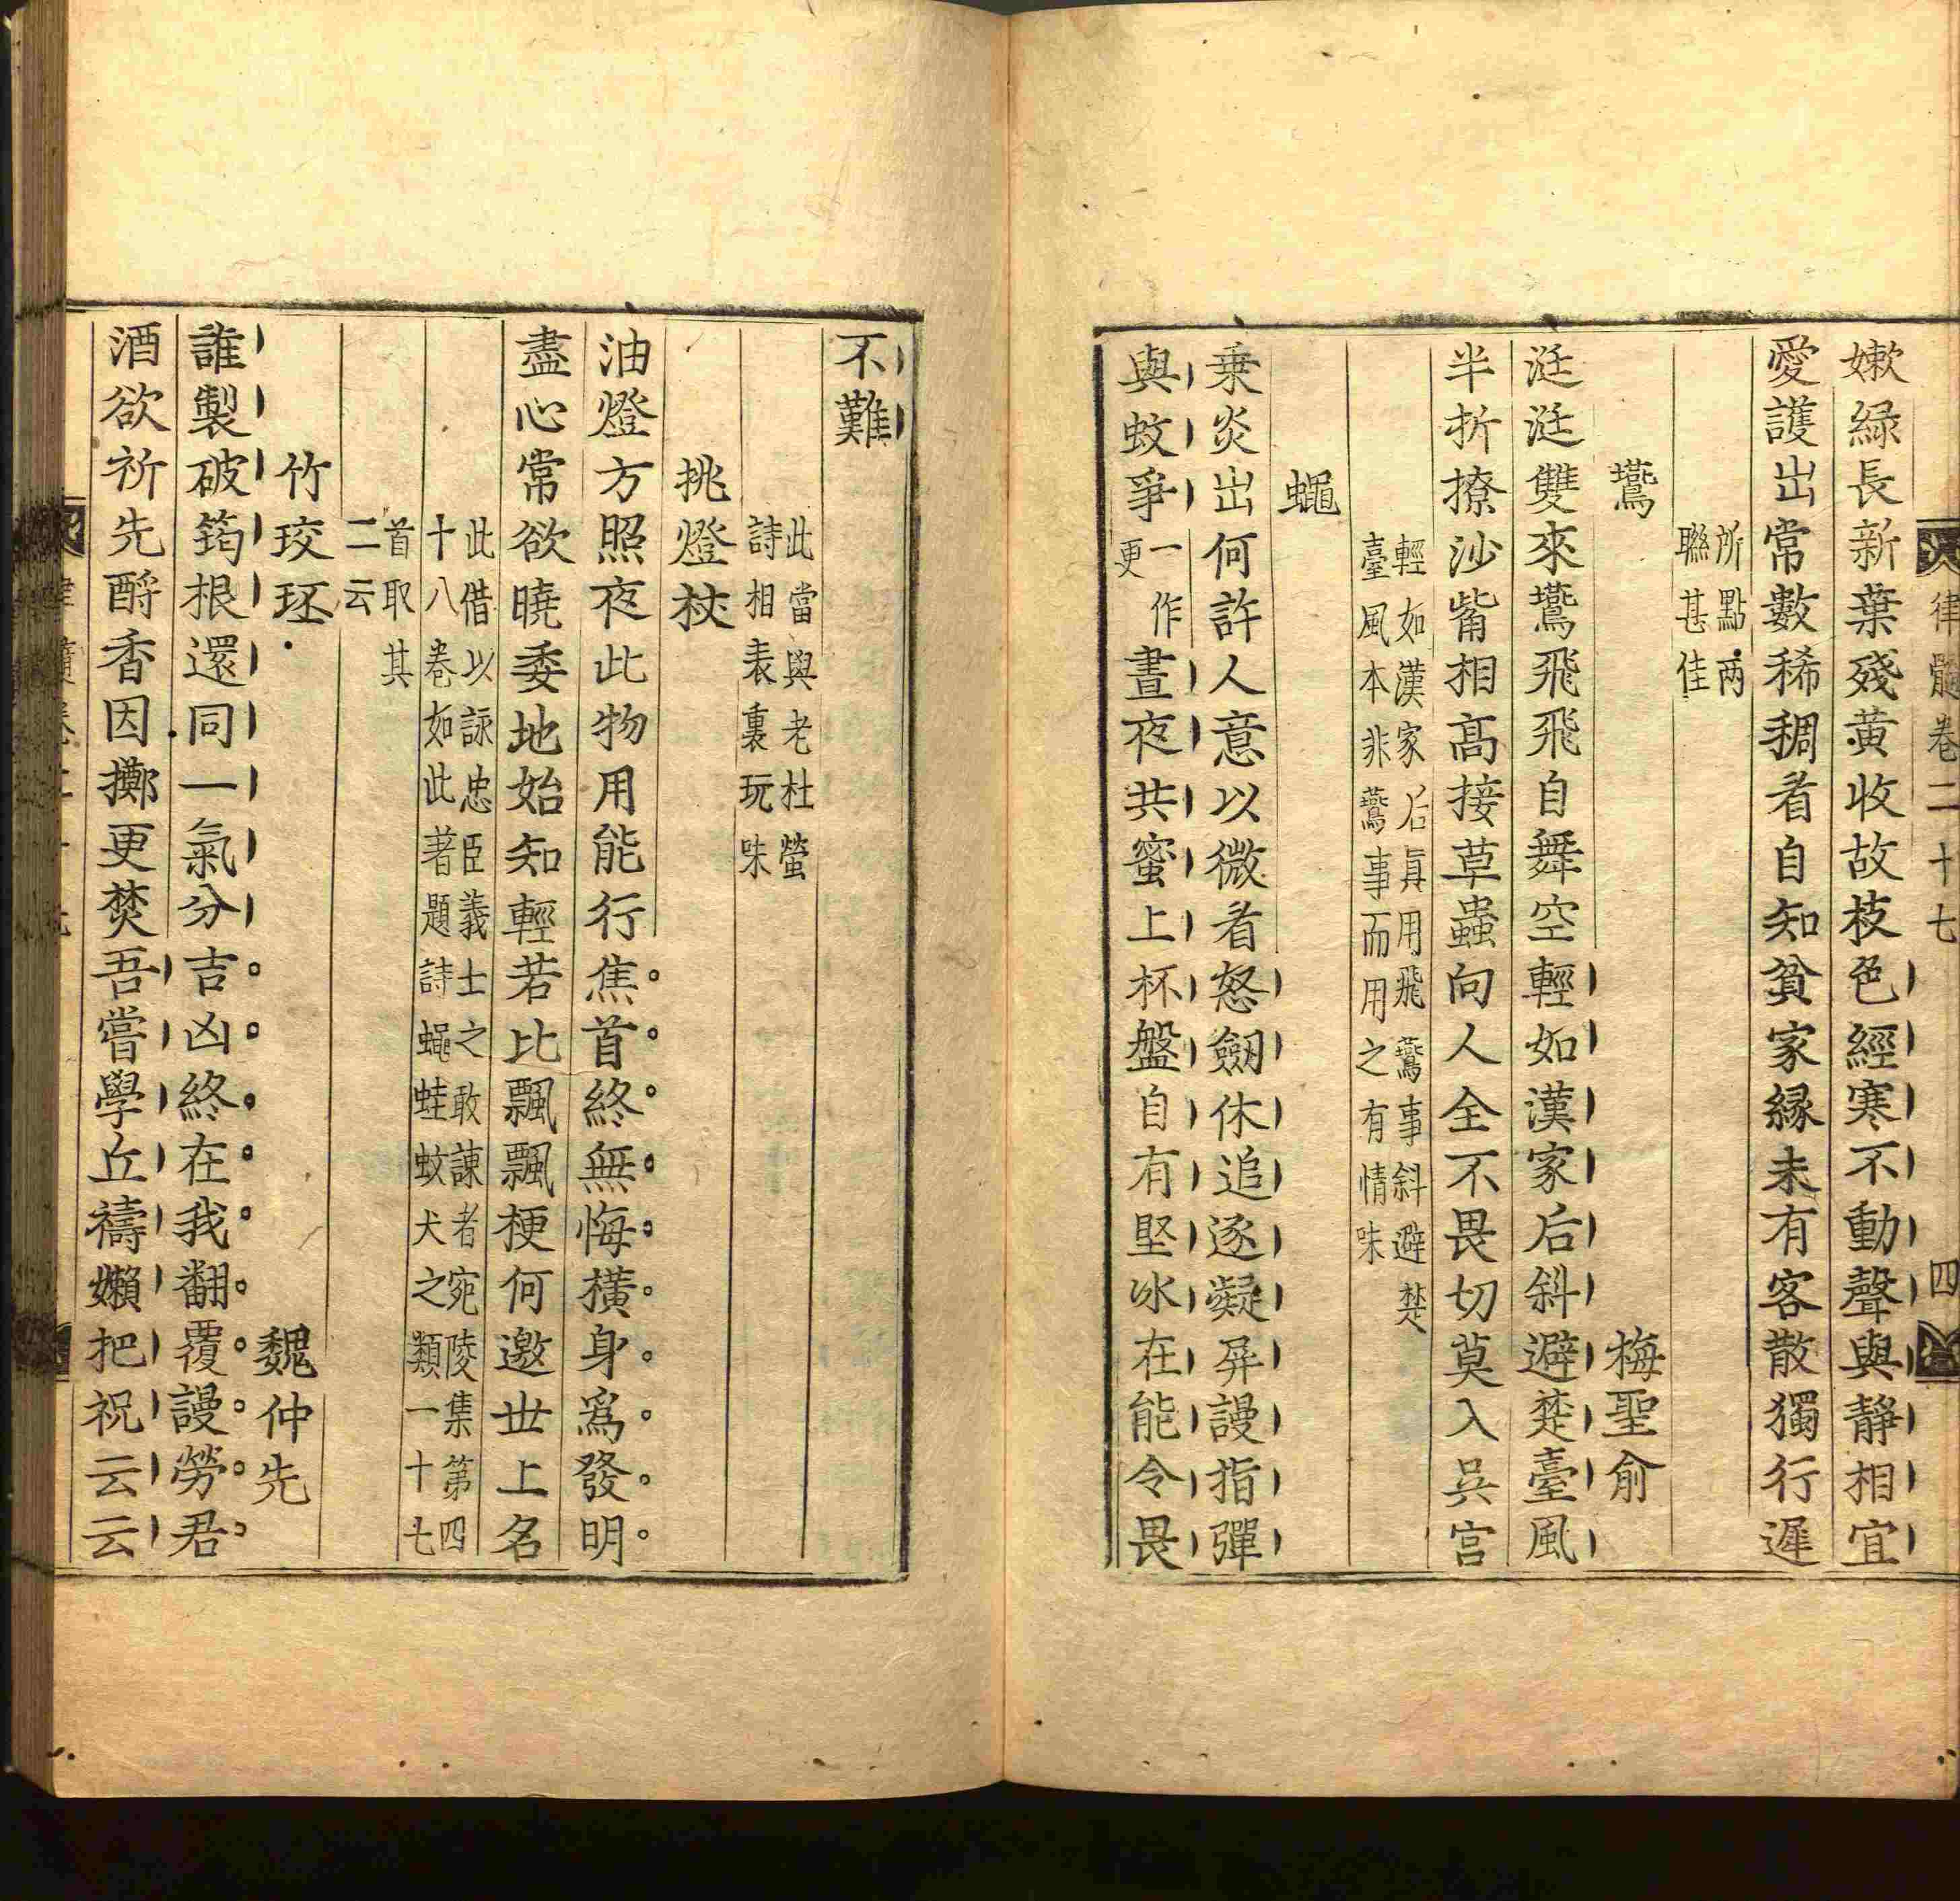 律髓卷二十七　四
嫰緑長新葉殘黃收故枝色經寒不動聲與靜相宜
愛護出常數稀稠看自知貧家縁未有客散獨行遲
所點两
聯甚佳
鷰　梅聖俞
涏涏雙來鷰飛飛自舞空輕如漢家后斜避楚臺風
半折撩沙觜相高接草蟲向人全不畏切莫入吳宫
輕如漢家后眞用飛鷰事斜避楚
臺風本非鷰事而用之有情味
蠅
乗炎出何許人意以微看怒劒休追逐凝屏謾指彈
與蚊爭一作更晝夜共蜜上杯盤自有堅冰在能令畏
不難
此當與老杜螢
詩相表裏玩味
挑燈杖
油燈方照夜此物用能行焦首終無悔橫身爲發明
盡心常欲曉委地始知輕若比飄飄梗何邀世上名
此借以詠忠臣義士之敢諫者宛陵集第四
十八卷如此著題詩蠅蛙蚊犬之類一十七
首取其
二云
竹珓珓　魏仲先
誰製破筠根還同一氣分吉凶終在我翻覆謾勞君
酒欲祈先酹香因擲更焚吾嘗學丘禱嬾把祝云云